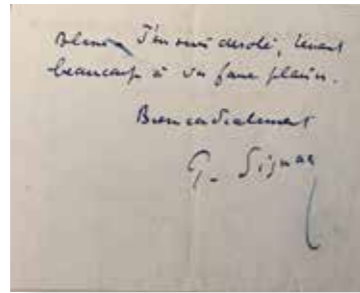 J'en suis désolé, tenant
beaucoup à vs faire plaisir.
Bien cordialement
Signac